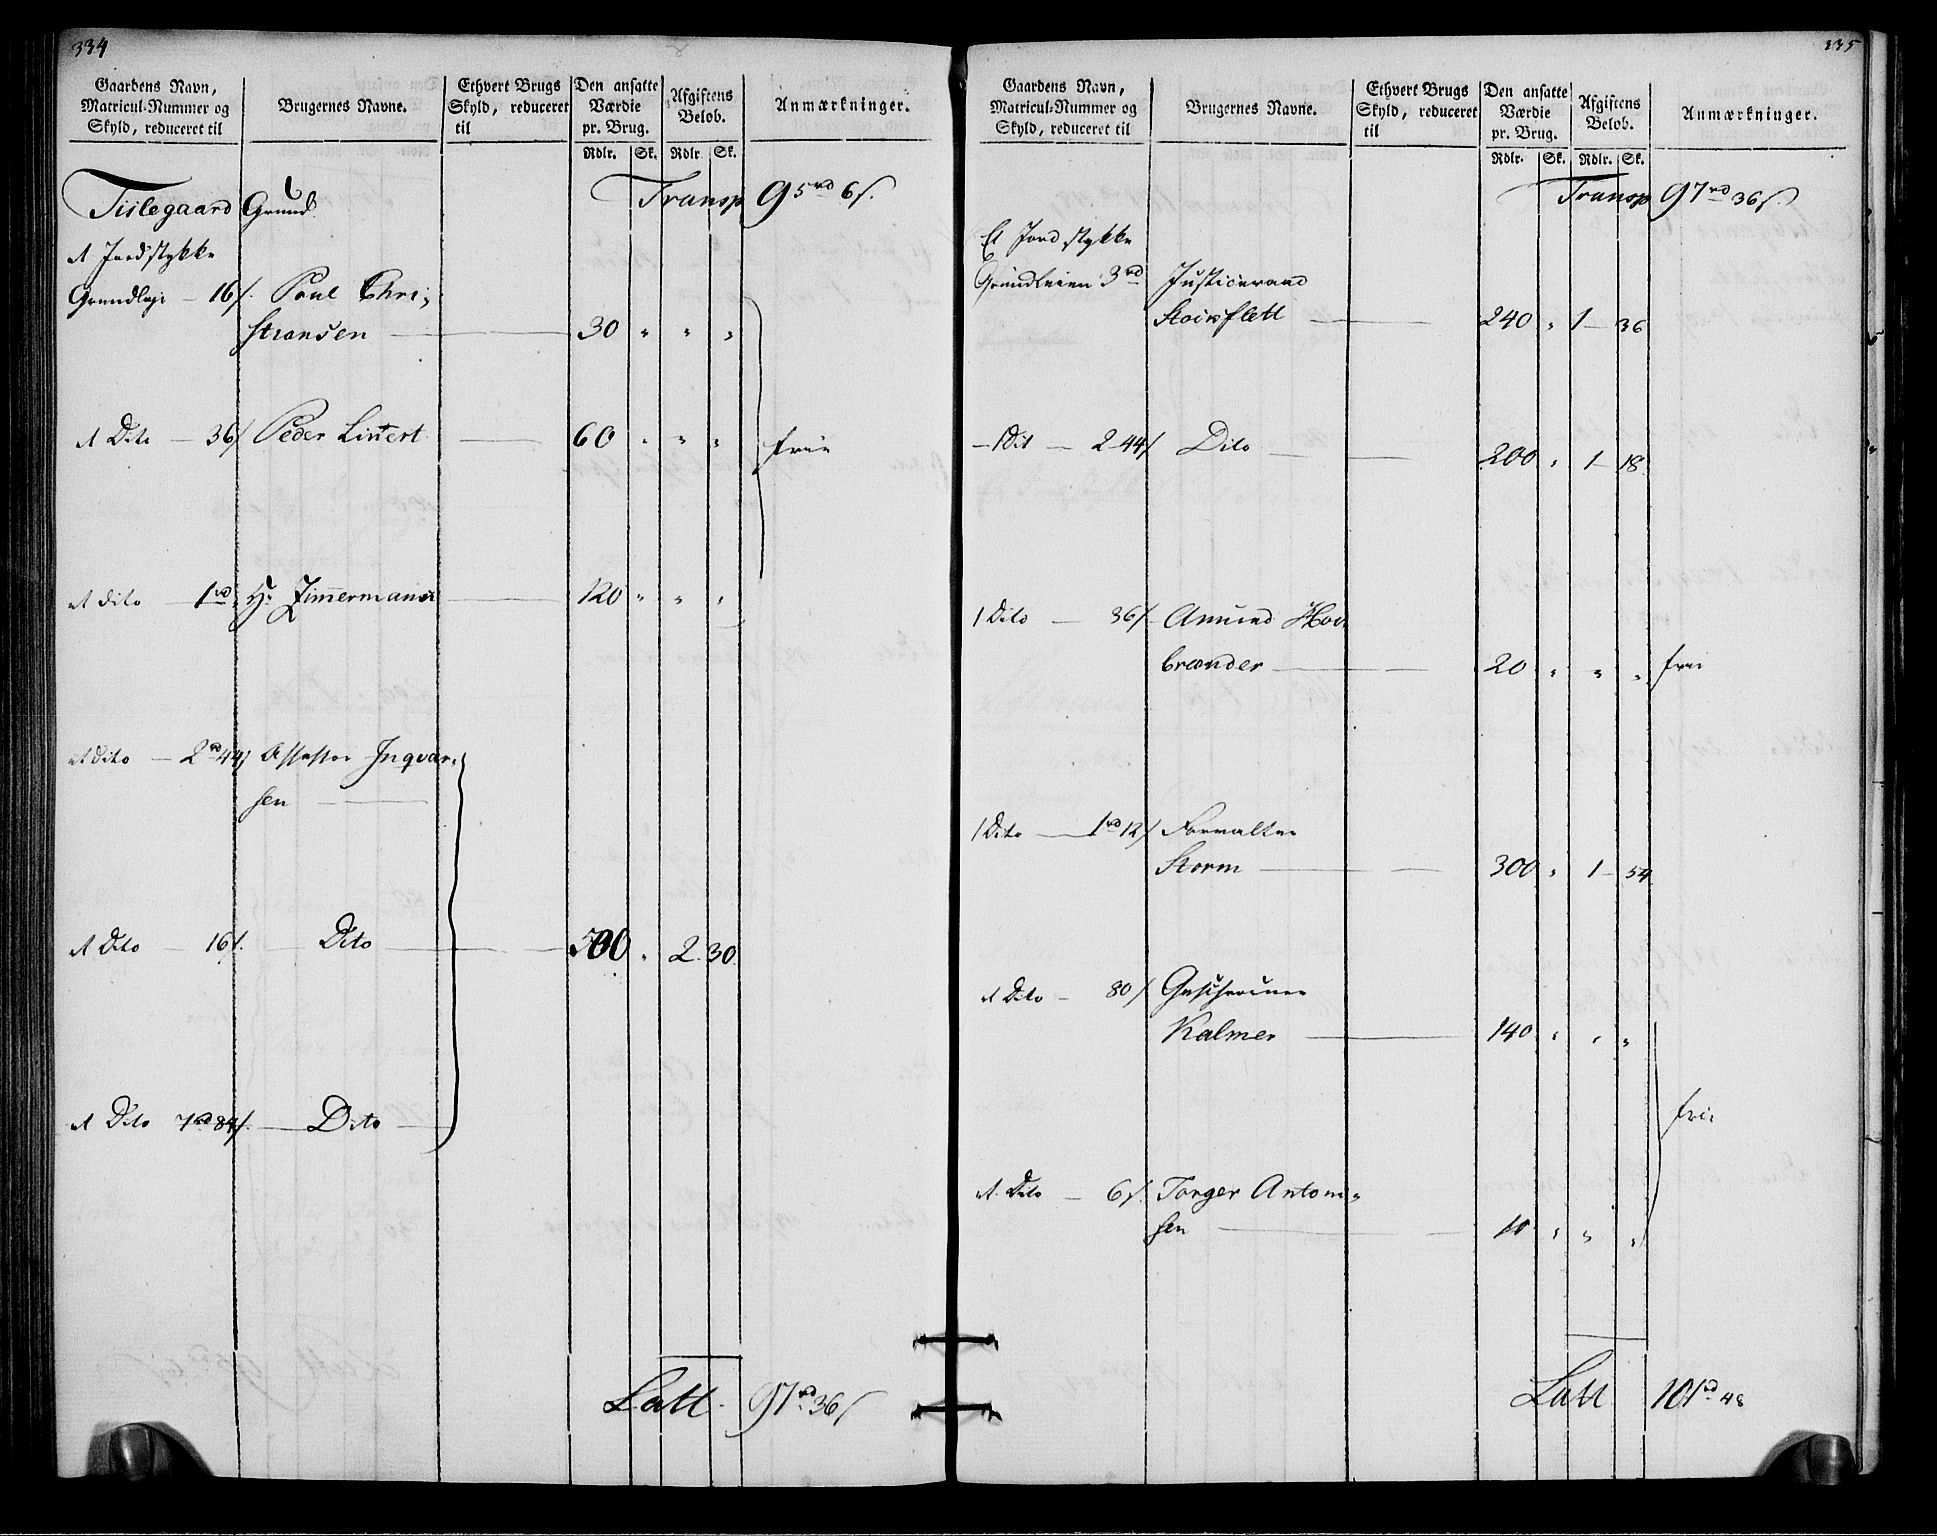 334
Gaardens Navn, Matricul-Nummer og Skyld, reduceret til
Brugernes Navne.
Ethvert Brugs Skyld, reduceret til
Den ansatte Værdie pr. Brug.
Afgiftens Beløb.
Anmærkninger.
Rdlr. Sk. Rdlr Sk.
Tislegaard Grund Transp 95 rd 6 s.
1 Jordstykke
Grundleje - 16 s. Poul Chri-
stiansen 30 " " "
1 Dito - 36 s Peder Linnert 60 " " " frie
1 dito - 1 rd Hr. Zimermann 120 " " "
1 dito - 2 rd 44 s Assessor Ingvar-
sen
1 Dito - 16 s. Dito 500 " 2 30
1 Dito 7 rd 84 s. Dito
Latt. 97 rd 36 s
335
Gaardens Navn, Matricul-Nummer og Skyld, reduceret til
Brugernes Navne.
Ethvert Brugs Skyld, reduceret til
Den ansatte Værdie pr. Brug.
Afgiftens Beløb.
Anmærkninger.
Rdlr. Sk. Rdlr. Sk.
Transp 97 rd 36 s.
Et Jord stykke
Grundleien 3 rd Justiceraad
240 " 1 - 36
1 Dit - 2 44 s Dito 200 " 1 - 18
1 Dito - 36 s Amund Hov-
brænder 20 " " " frie
1 Dito - 1 rd 12 s Forvalter
Storm 300 " 1 - 54
1 Dito - 80 s
Kalmer 140 " " "
frie
1 Dito - 6 s. Torger Antoni-
sen 10 " " "
Latt 101 rd 48